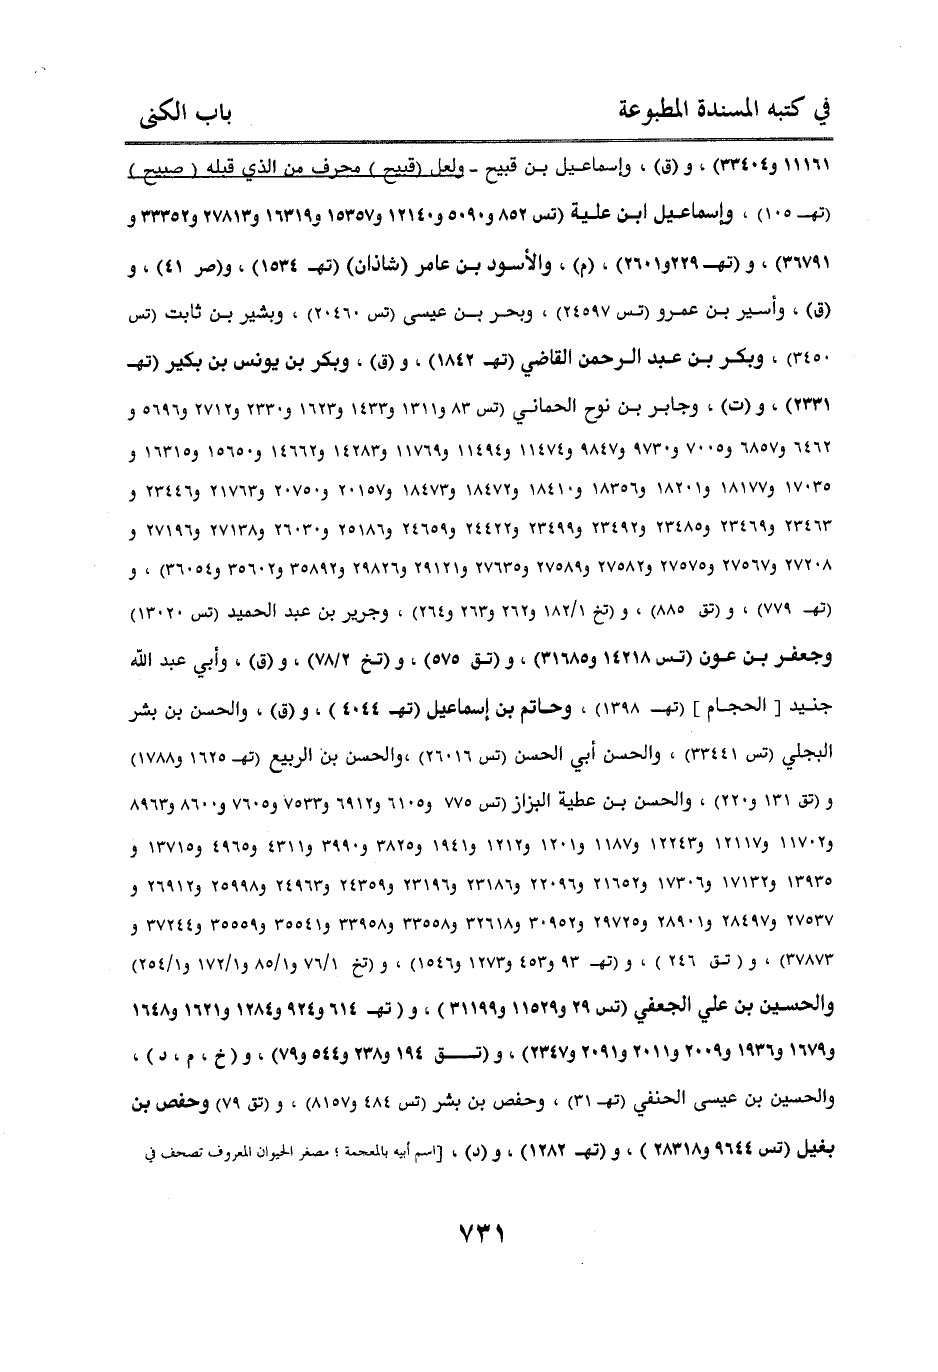 في كتبه المسندة المطبوعة باب الكنى
١١١٦١ و٣٣٤٠٤) ، و (ق) ، وإسماعيل بن قبيح - ولعل (قبيح ) محرف من الذي قبله ( صبيح )
(تهـ ١٠٥) ، وإسماعيل ابن علية (تس ٨٥٢ و٥٠٩٠ و١٢١٤٠ و١٥٣٥٧ و١٦٣١٩ و٢٧٨١٣ و٣٣٣٥٢ و
٣٦٧٩١) ، و (تهـ ٢٢٩ و٢٦٠١) ، (م) ، والأسود بن عامر (شاذان) (تهـ ١٥٣٤) ، و(صر ٤١) ، و
(ق) ، وأسير بن عمرو (تس ٢٤٥٩٧) ، وبحر بن عيسى (تس ٢٠٤٦٠) ، وبشير بن ثابت (تس
٣٤٥٠) ، وبكر بن عبد الرحمن القاضي (تهـ ١٨٤٢) ، و (ق) ، وبكر بن يونس بن بكير (تهـ
٢٣٣١) ، و (ت) ، وجابر بن نوح الحماني (تس ٨٣ و١٣١١ و١٤٣٣ و١٦٢٣ و٢٣٣٠ و٢٧١٢ و٥٦٩٦ و
٦٤٦٢ و٦٨٥٧ و٧٠٠٥ و٩٧٣٠ و٩٨٤٧ و١١٤٧٤ و١١٤٩٤ و١١٧٦٩ و١٤٢٨٣ و١٤٦٦٢ و١٥٦٥٠ و١٦٣١٥ و
١٧٠٣٥ و١٨١٧٧ و١٨٢٠١ و١٨٣٥٦ و١٨٤١٠ و١٨٤٧٢ و١٨٤٧٣ و٢٠١٥٧ و٢٠٧٥٠ و٢١٧٦٣ و٢٣٤٤٦ و
٢٣٤٦٣ و٢٣٤٦٩ و٢٣٤٨٥ و٢٣٤٩٢ و٢٣٤٩٩ و٢٤٤٢٢ و٢٤٦٥٩ و٢٥١٨٦ و٢٦٠٣٠ و٢٧١٣٨ و٢٧١٩٦ و
٢٧٢٠٨ و٢٧٥٦٧ و٢٧٥٧٥ و٢٧٥٨٢ و٢٧٥٨٩ و٢٧٦٣٥ و٢٩١٢١ و٢٩٨٢٦ و٣٥٨٩٢ و٣٥٦٠٢ و٣٦٠٥٤) ، و
(تهـ ٧٧٩) ، و (تق ٨٨٥) ، و (تخ ١٨٢/١ و٢٦٢ و٢٦٣ و٢٦٤) ، وجرير بن عبد الحميد (تس ١٣٠٢٠)
وجعفر بن عون (تس ١٤٢١٨ و٣١٦٨٥) ، و (تق ٥٧٥) ، و (تخ ٧٨/٢) ، و (ق) ، وأبي عبد الله
جنيد [ الحجام ] (تهـ ١٣٩٨) ، وحاتم بن إسماعيل (تهـ ٤٠٤٤ ) ، و (ق) ، والحسن بن بشر
البجلي (تس ٣٣٤٤١) ، والحسن أبي الحسن (تس ٢٦٠١٦) ،والحسن بن الربيع (تهـ ١٦٢٥ و١٧٨٨)
و (تق ١٣١ و٢٢٠) ، والحسن بن عطية البزاز (تس ٧٧٥ و٦١٠٥ و٦٩١٢ و٧٥٣٣ و٧٦٠٥ و٨٦٠٠ و٨٩٦٣
و١١٧٠٢ و١٢١١٧ و١٢٢٤٣ و١١٨٧ و١٢٠١ و١٢١٢ و١٩٤١ و٣٨٢٥ و٣٩٩٠ و٤٣١١ و٤٩٦٥ و١٣٧١٥ و
١٣٩٣٥ و١٧١٣٢ و١٧٣٠٦ و٢١٦٥٢ و٢٢٠٩٦ و٢٣١٨٦ و٢٣١٩٦ و٢٤٣٥٩ و٢٤٩٦٣ و٢٥٩٩٨ و٢٦٩١٢ و
٢٧٥٣٧ و٢٨٤٩٧ و٢٨٩٠١ و٢٩٧٢٥ و٣٠٩٥٢ و٣٢٦١٨ و٣٣٥٥٨ و٣٣٩٥٨ و٣٥٥٤١ و٣٥٥٥٩ و٣٧٢٤٤ و
٣٧٨٧٣) ، و ( تق ٢٤٦ ) ، و (تهـ ٩٣ و٤٥٣ و١٢٧٣ و١٥٤٦) ، و (تخ ٧٦/١ و٨٥/١ و١٧٢/١ و٢٥٤/١)
والحسين بن علي الجعفي (تس ٢٩ و١١٥٢٩ و٣١١٩٩ ) ، و ( تهـ ٦١٤ و٩٢٤ و١٢٨٤ و١٦٢١ و١٦٤٨
و١٦٧٩ و١٩٣٦ و٢٠٠٩ و٢٠١١ و٢٠٩١ و٢٣٤٧) ، و (تق ١٩٤ و٢٣٨ و٥٤٤ و٧٩) ، و ( خ ، م ، د ) ،
والحسين بن عيسى الحنفي (تهـ ٣١) ، وحفص بن بشر (تس ٤٨٤ و٨١٥٧) ، و (تق ٧٩) وحفص بن
بغيل (تس ٩٦٤٤ و٢٨٣١٨ ) ، و (تهـ ١٢٨٢) ، و (د) ، [اسم أبيه بالمعجمة ؛ مصغر الحيوان المعروف تصحف في
٧٣١